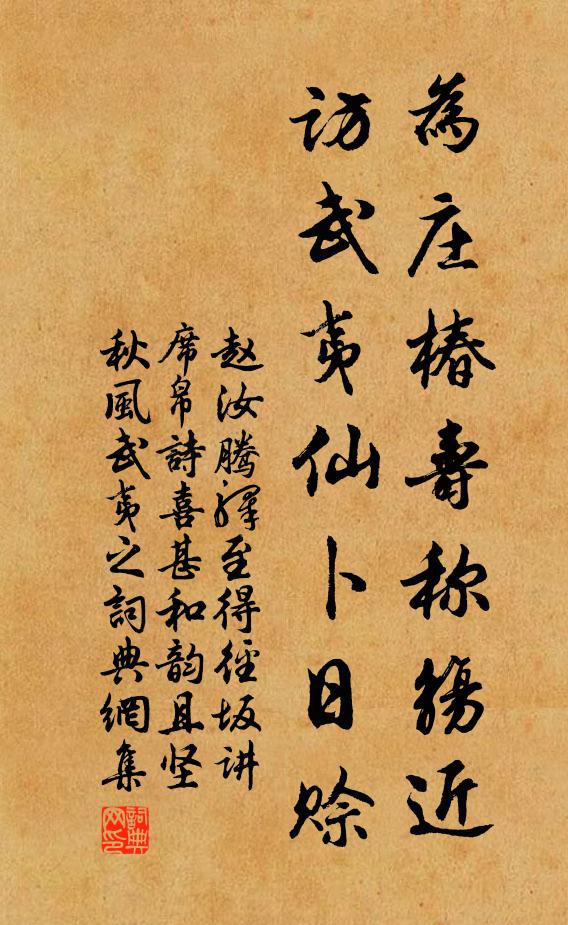 為庄椿壽称觞近
訪武夷仙卜日赊
赵汝腾驿至得径坂讲
席帛詩喜甚和韵且坚
秋風武夷之詞典網集
詞典网印